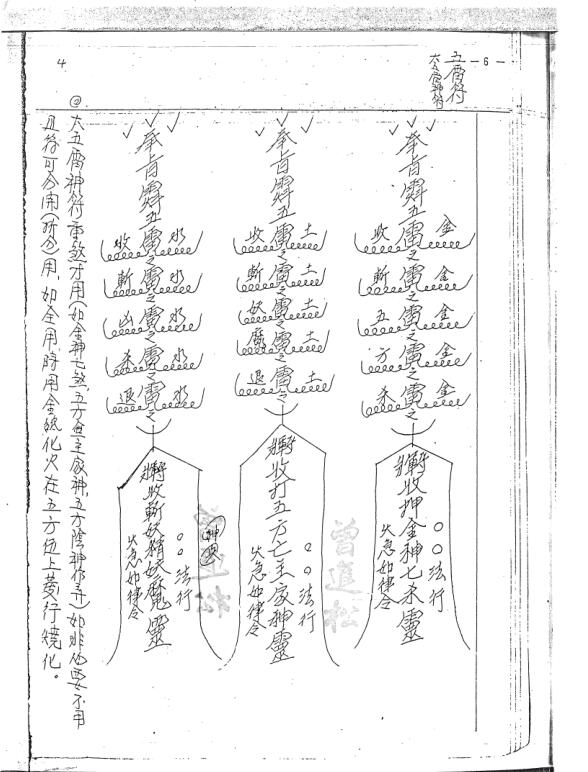 五雷符
— 6 —
奉旨 五雷之雷之雷之雷之雷之
收 金
斬 金
五 金
方 金
杀 金
收押金神七杀靈
○○法行
火急如律令
奉旨 五雷之雷之雷之雷之雷之
收 土
斬 土
妖 土
魔 土
退 土
收打五方亡主家神靈
○○法行
火急如律令
曾進松
奉旨 五雷之雷之雷之雷之雷之
收 水
斬 水
凶 水
杀 水
退 水
收斬妖精妖魔靈
○○法行
火急如律令
曾進松
大五雷神符重煞才用(如金神七煞,五方亡主家神,五方陰神作弄)如非必要不用
且符可分用(所分)用,如全用時用金紙化火在五方位上 行燒化。
4